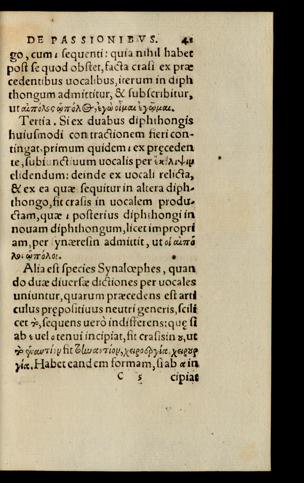 DE PASSIONIBVS. 41
go, cum ι sequenti: quia nihil habet
post se quod obstet, facta crasi ex præ
cedentibus uocalibus, iterum in diph
thongum admittitur, & subscribitur,
ut αἰπόλος ᾡπόλος, ἐγὼ οἶμαι ἐγᾦμαι.
Tertia. Si ex duabus diphthongis
huiusmodi contractionem fieri con-
tingat: primum quidem ι ex præceden
te, subiunctiuum uocalis per ἔκθλιψιν
elidendum: deinde ex uocali relicta,
& ex ea quæ sequitur in altera diph-
thongo, fit crasis in uocalem produ-
ctam, quæ ι posterius diphthongi in
nouam diphthongum, licet impropri
am, per synæresin admittit, ut οἱ αἰπό
λοι ᾡπόλοι.
Alia est species Synalœphes, quan
do duæ diuersæ dictiones per uocales
uniuntur, quarum præcedens est arti
culus prepositiuus neutri generis, scili
cet τὸ, sequens uerò indifferens: quę si
ab ε uel ο tenui incipiat, fit crasis in ȣ, ut
τὸ ἐναντίον fit τοὐναντίον, χειροεργία, χειρουρ
γία. Habet eandem formam, si ab α in
C 5 cipiat